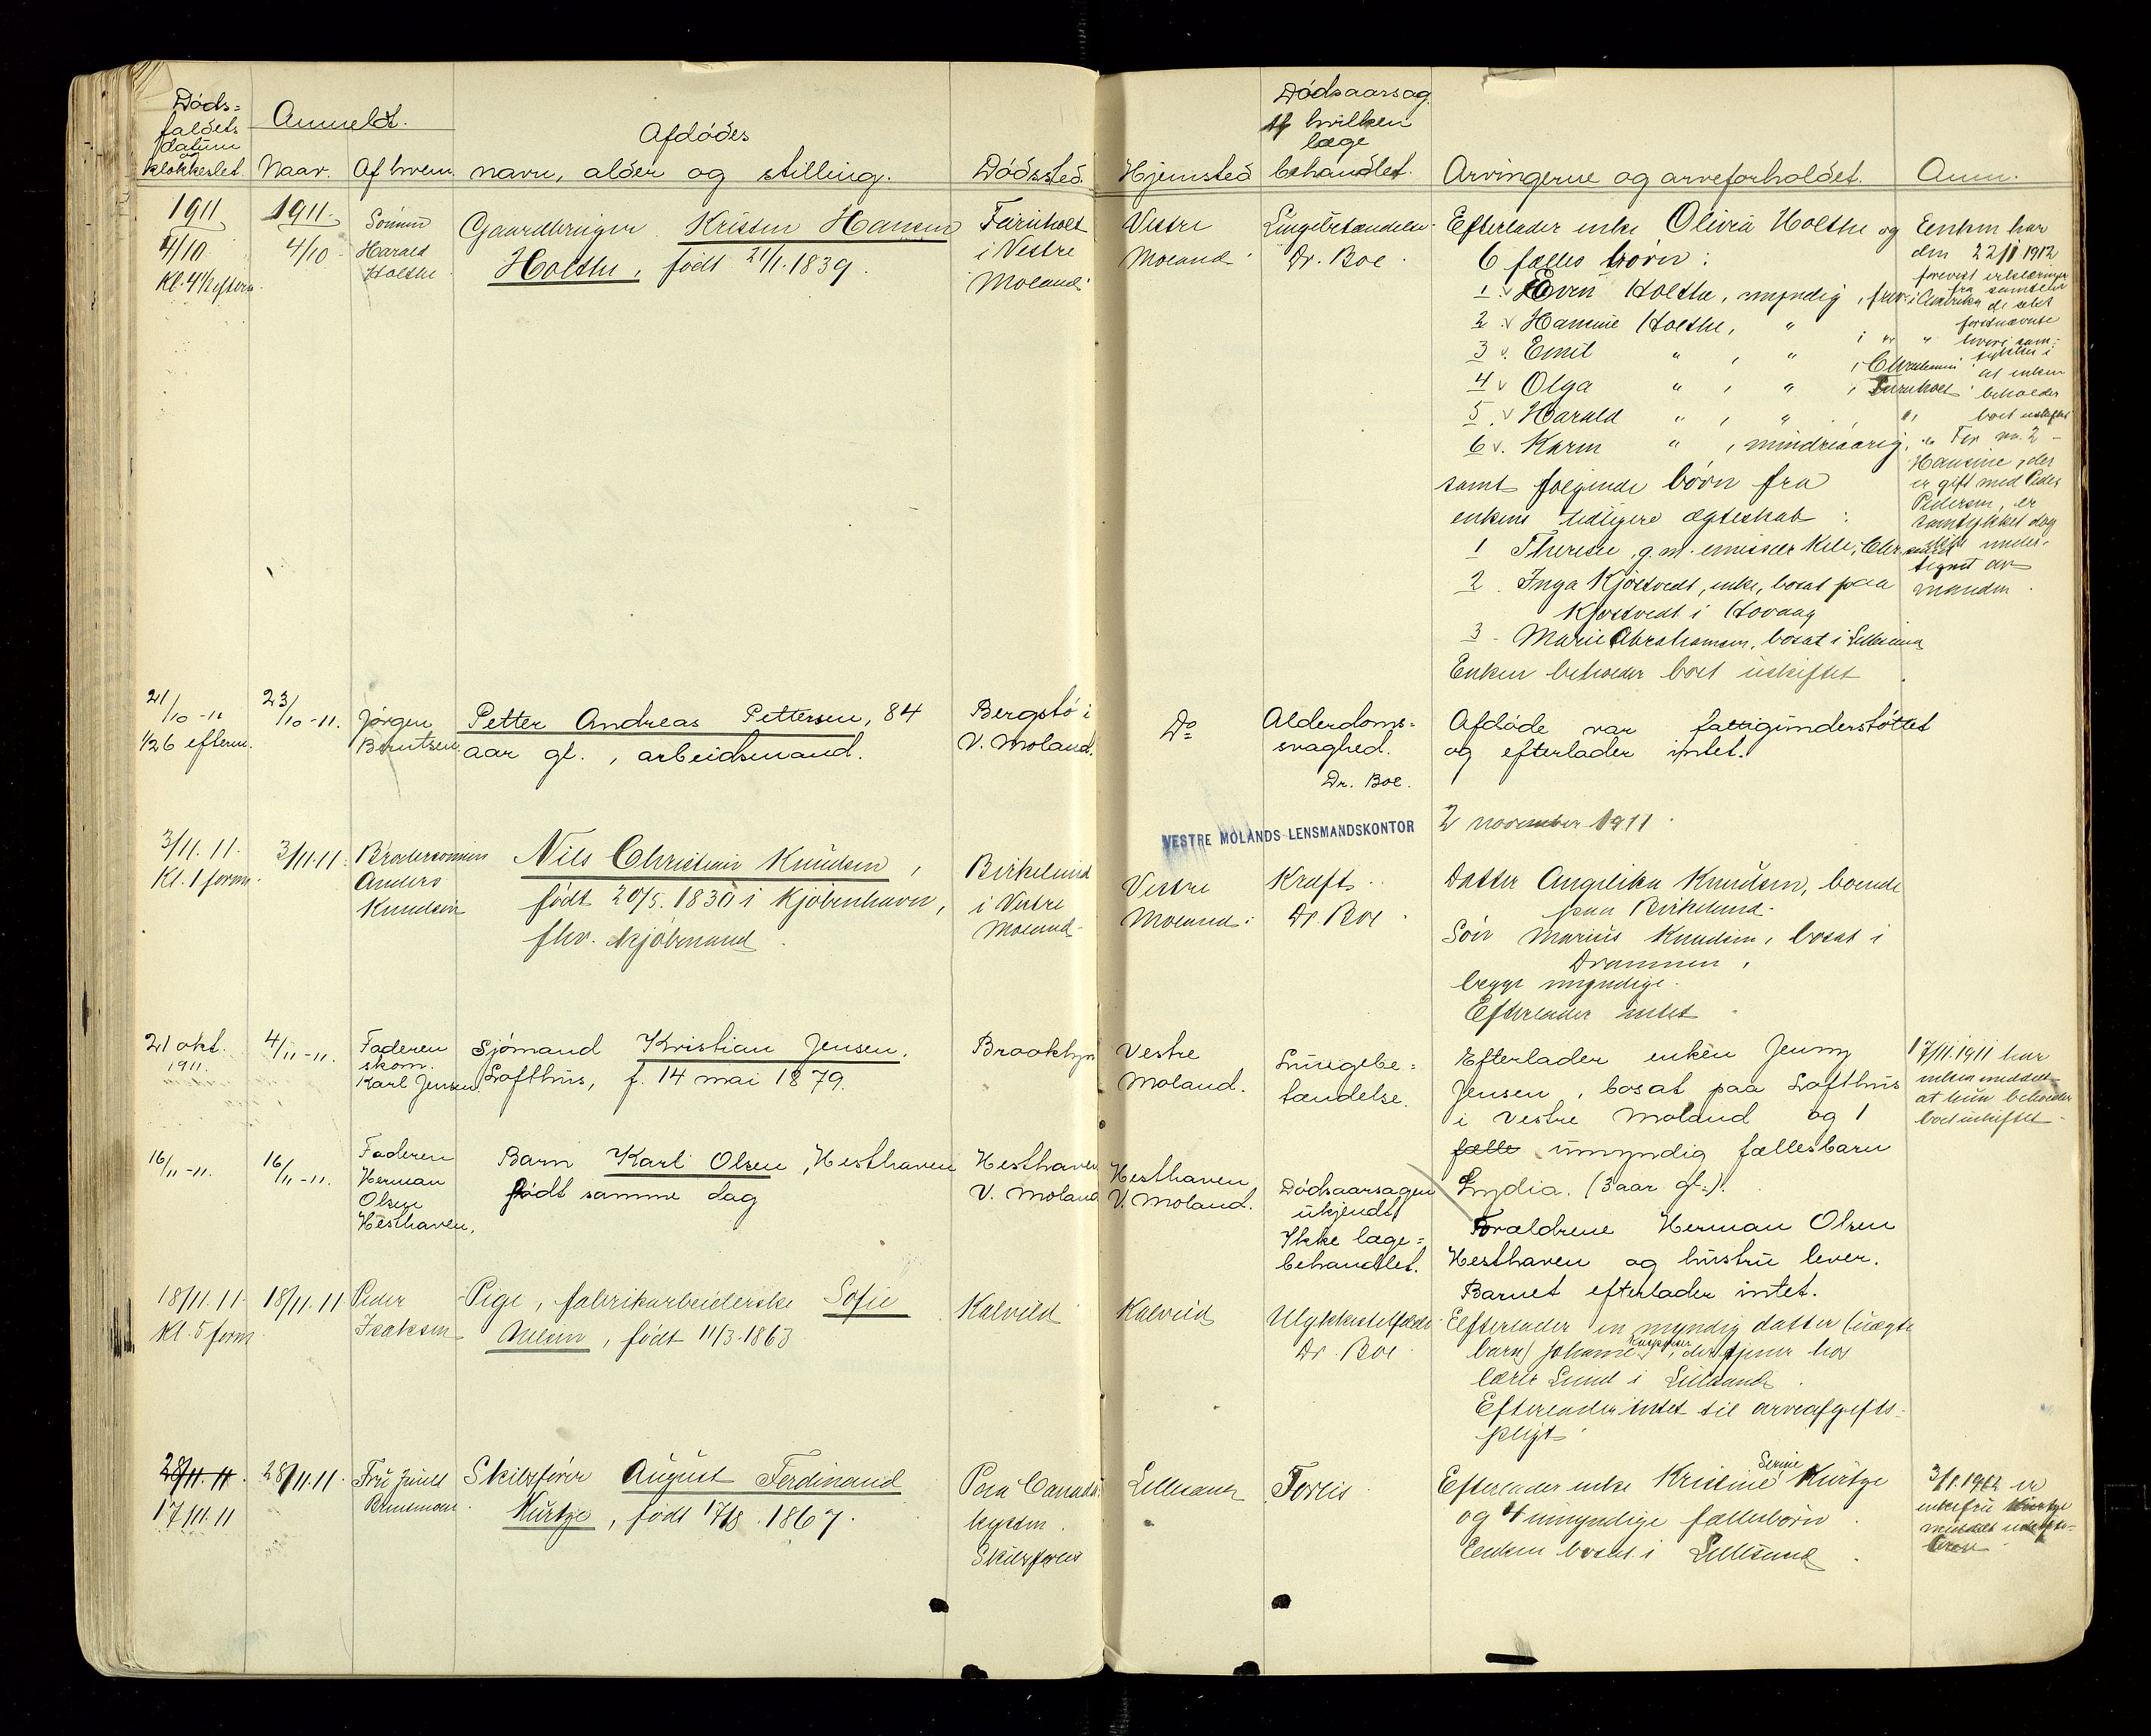 Døds=
faldets
datum
og
klokkeslet.
Anmeldt.
Naar.
Af hvem.
Afdødes
navn, alder og stilling.
Dødssted.
Hjemsted
Dødsaarsag.
Af hvilken
læge
behandlet.
Arvingerne og arveforholdet.
Anm.
1911
4/10
Kl. 4 1/2 efterm.
1911.
4/10
Sønnen
Harald
Holthe
Gaardbruger Kristen Hansen
Holthe, født 21/1. 1839.
Furuholt
i Vestre
Moland
Vestre
Moland
Lungebetændelse.
Dr. Boe.
Efterlader enke Olivia Holthe og
6 fælles børn:
1 v Even Holthe, myndig, fv. i Amerika
2 v Hansine Holthe, " i " "
3 v. Emil " , " , i Christiania
4 v Olga " , " , Furuholt
5. v Harald " , " , "
6 v. Karen " , mindreaarig, "
samt følgende børn fra
enkens tidligere ægteskab:
1 Therese, g. m. emissær Kile, Chr.sand
2. Inga Kjøstvedt, enke, bosat paa
Kjøstvedt i Høvaag
3 - Marie Abrahamsen, bosat i Lillesand
Enken beholder boet uskiftet.
Enken har
den 22/1 1912
forevist erklæringer
fra samtlige
de
at enken
beholder
boet uskiftet
For nr. 2 -
Hansine, der
er gift med Peder
Pedersen, er
samtykket dog
under-
tegnet av
manden.
21/10 - 11
1/2 6 efterm.
23/10 - 11.
Jørgen
Berntsen.
Petter Andreas Pettersen, 84
aar gl., arbeidsmand.
Bergstø i
V. Moland.
Do
Alderdoms=
svaghed.
Dr. Boe.
Afdøde var fattigunderstøttet
og efterlader intet.
VESTRE MOLANDS LENSMANDSKONTOR
2 november 1911.
3/11. 11.
Kl. 1 form.
3/11. 11.
Brodersønnen
Anders
Knudsen
Nils Christian Knudsen,
født 20/5. 1830 i Kjøbenhavn,
fhv. kjøbmand.
Birkelund
i Vestre
Moland.
Vestre
Moland.
Kræft.
Dr. Boe.
Datter Angelika Knudsen, boende
paa Birkelund.
Søn Marius Knudsen, bosat i
Drammen,
begge myndige.
Efterlader intet.
21 okt.
1911.
4/11 - 11.
Faderen
skom.
Karl Jensen
Sjømand Kristian Jensen,
Lofthus, f. 14 mai 1879.
Brooklyn
Vestre
Moland.
Lungebe=
tændelse.
Efterlader enken Jenny
Jensen, bosat paa Lofthus
i Vestre Moland og 1
fælle umyndig fællesbarn
Lydia. (3 aar gl.).
17/11. 1911 har
enken meddelt
at hun beholder
boet uskiftet.
16/11 - 11.
16/11 - 11.
Faderen
Herman
Olsen
Hesthaven.
Barn Karl Olsen, Hesthaven
født samme dag
Hesthaven
V. Moland
Hesthaven
V. Moland.
Dødsaarsagen
ukjendt.
Ikke læge=
behandlet.
Forældrene Herman Olsen
Hesthaven og hustru lever.
Barnet efterlader intet.
18/11. 11.
Kl. 5 form
18/11. 11
Peder
Isaksen
Pige, fabrikarbeiderske Sofie
Nilsen, født 11/3. 1863
Kalvild
Kalvild
Ulykkestilfælde
Dr. Boe.
Efterlader en myndig datter (uægte
barn) Johanne, der tjener hos
lærer Lund i Lillesand.
Efterlader intet til arveafgifts-
pligt.
28/11. 11.
17/11. 11
28/11. 11.
Fru
Skibsfører August Ferdinand
Kurtze, født 17/8. 1867.
Paa Canada
kysten.
Skibsforlis
Lillesand
Forlis.
Efterlader enke Kristine Serine Kurtze
og 4 umyndige fællesbørn.
Enken bosat i Lillesand.
3/1. 1912 er
enkefru Kurtze
meddelt